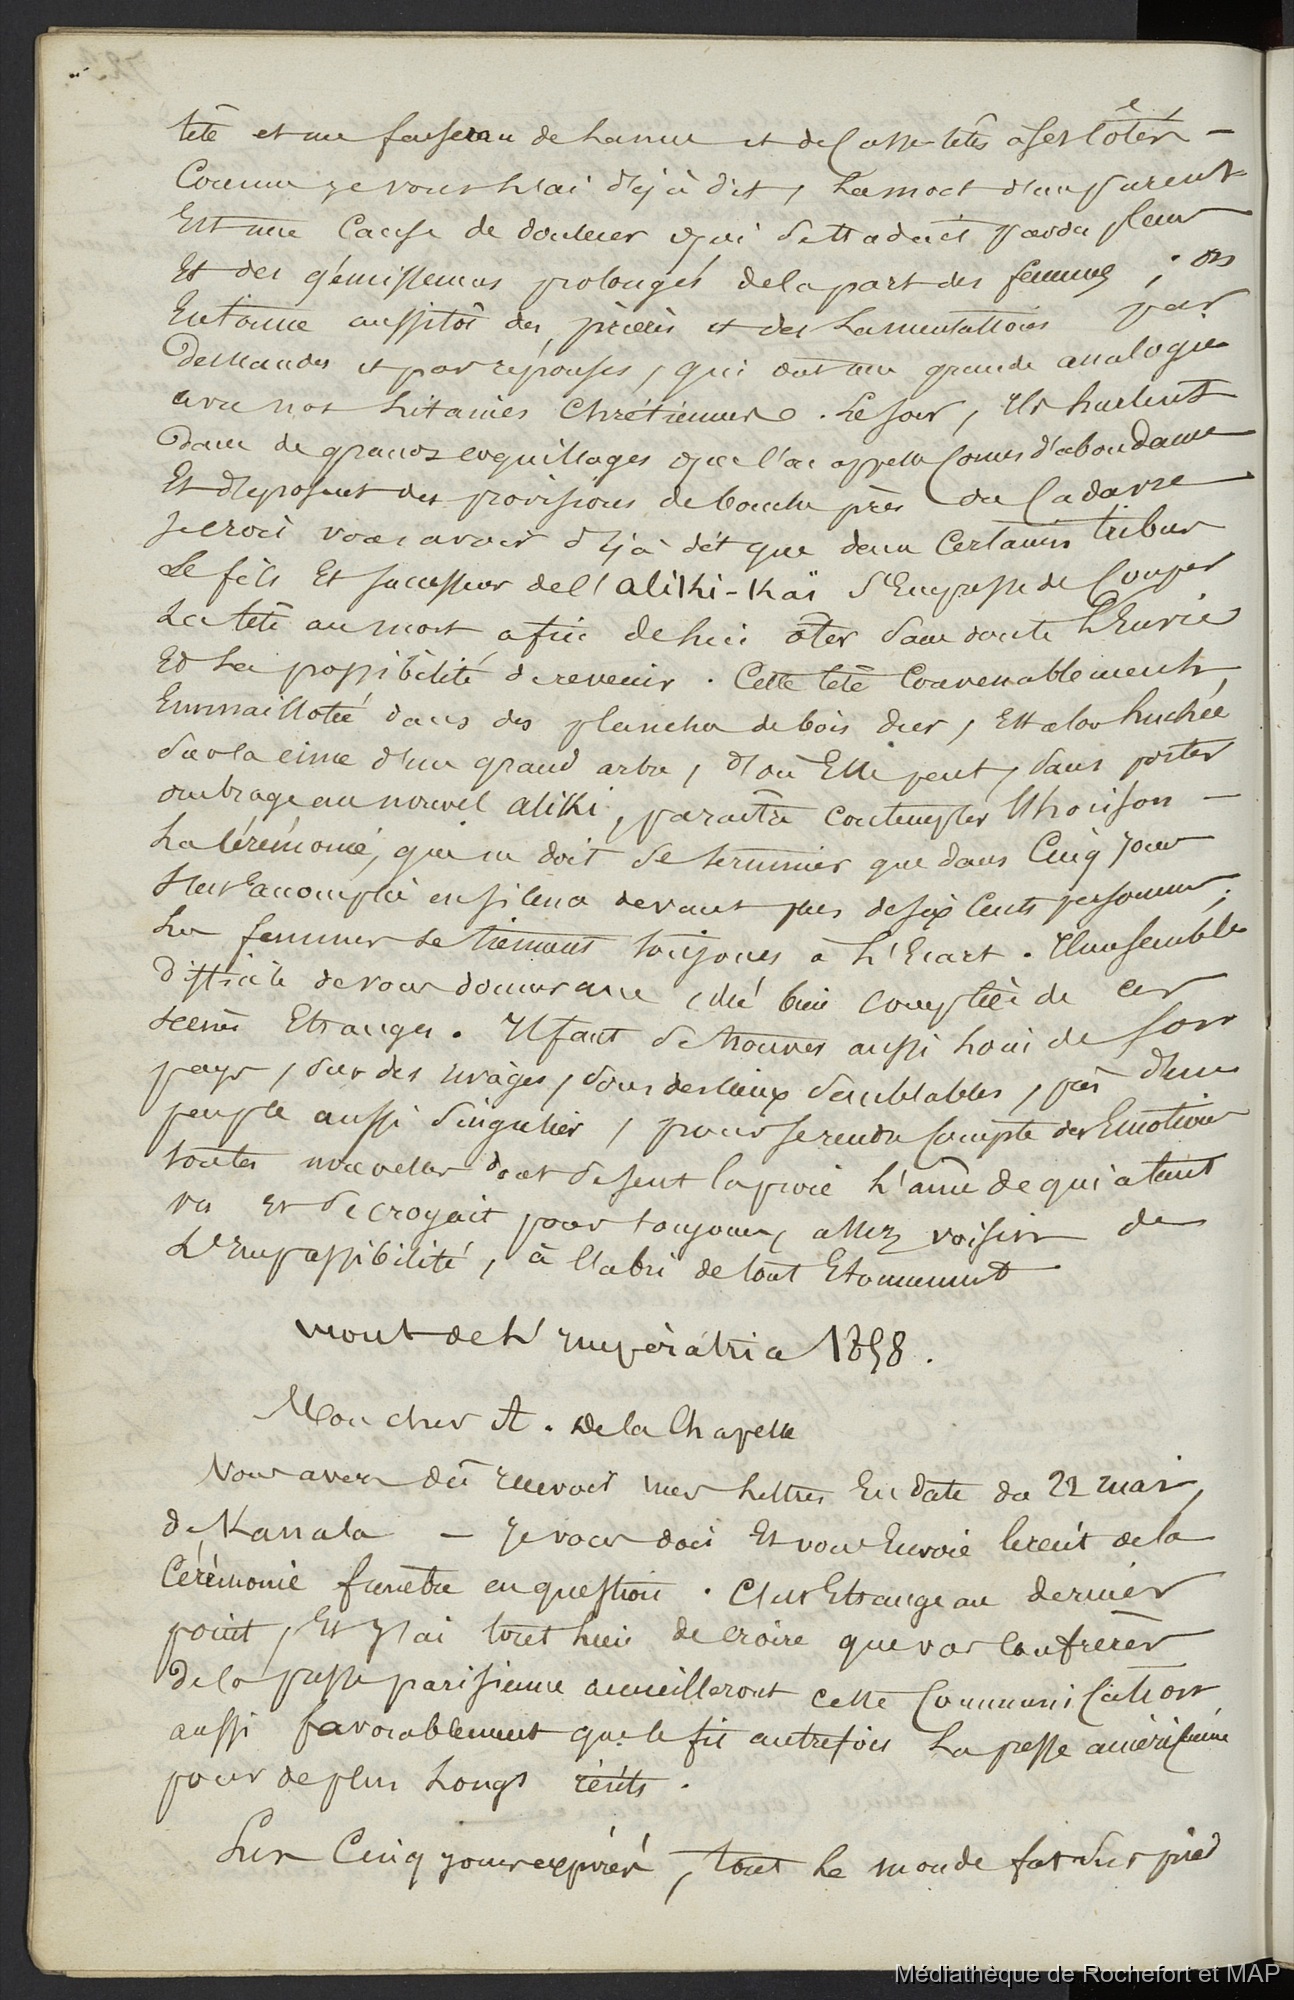 tête et un faisceau de lances et de casse-têtes à ses côtés –
Comme je vous l'ai déjà dit, la mort d'un parent
Est une Cause de douleur qui se traduit par des pleurs
Et des gémissemens prolongés de la part des femmes ; on
Entonne aussitôt des prières et des Lamentations par
Demandes et par réponses, qui ont une grande analogie
avec nos Litanies Chrétiennes. Le soir, Ils hurlent
Dans de grands coquillages que l'on appelle Cornes d'abondance
Et déposent des provisions de bouche près du Cadavre
Je crois vous avoir déjà dit que dans Certaines tribus
Le fils Et successeur de l'aliki-Kaï s'Empresse de Couper
La tête au mort afin de lui ôter sans doute L'Envie
Et La possibilité de revenir. Cette tête Convenablement
Emmaillotée dans des planches de bois dur, Est alors huchée
sur la cime d'un grand arbre, d'où Elle peut, sans porter
ombrage au nouvel aliki, paraître Contempler l'horison –
La Cérémonie, qui ne doit se terminer que dans Cinq jours
s'Est accomplie en silence devant plus de six Cents personnes ;
Les femmes se tiennent toujours à L'Ecart. Il me semble
Difficile de vous donner une idée bien complète de ces
scènes Etranges. Il faut se trouver aussi loin de son
pays, sur des rivages, sous des cieux semblables, près d'un
peuple aussi singulier, pour se rendre Compte des Emotions
toutes nouvelles dont se sent la proie L'âme de qui a tant
vu Et se croyait pour toujours assez voisin de
L'Empassibilité, à l'abri de tout Etonnement
Mont de L'Impératrice 1858.
Mon cher A. de la Chapelle
Vous avez dû recevoir mes Lettres En date du 22 mai,
de Kanala – Je vous dois Et vous Envoie le récit de la
Cérémonie funèbre en question. C'est Etrange au dernier
point, Et J'ai tout lieu de croire que vos Confrères
De la presse parisienne accueilleront cette Communication
aussi favorablement que le fit autrefois La presse américaine
pour de plus Longs récits.
Les Cinq jours expirés, tout Le monde fut sur pied
Médiathèque de Rochefort et MAP